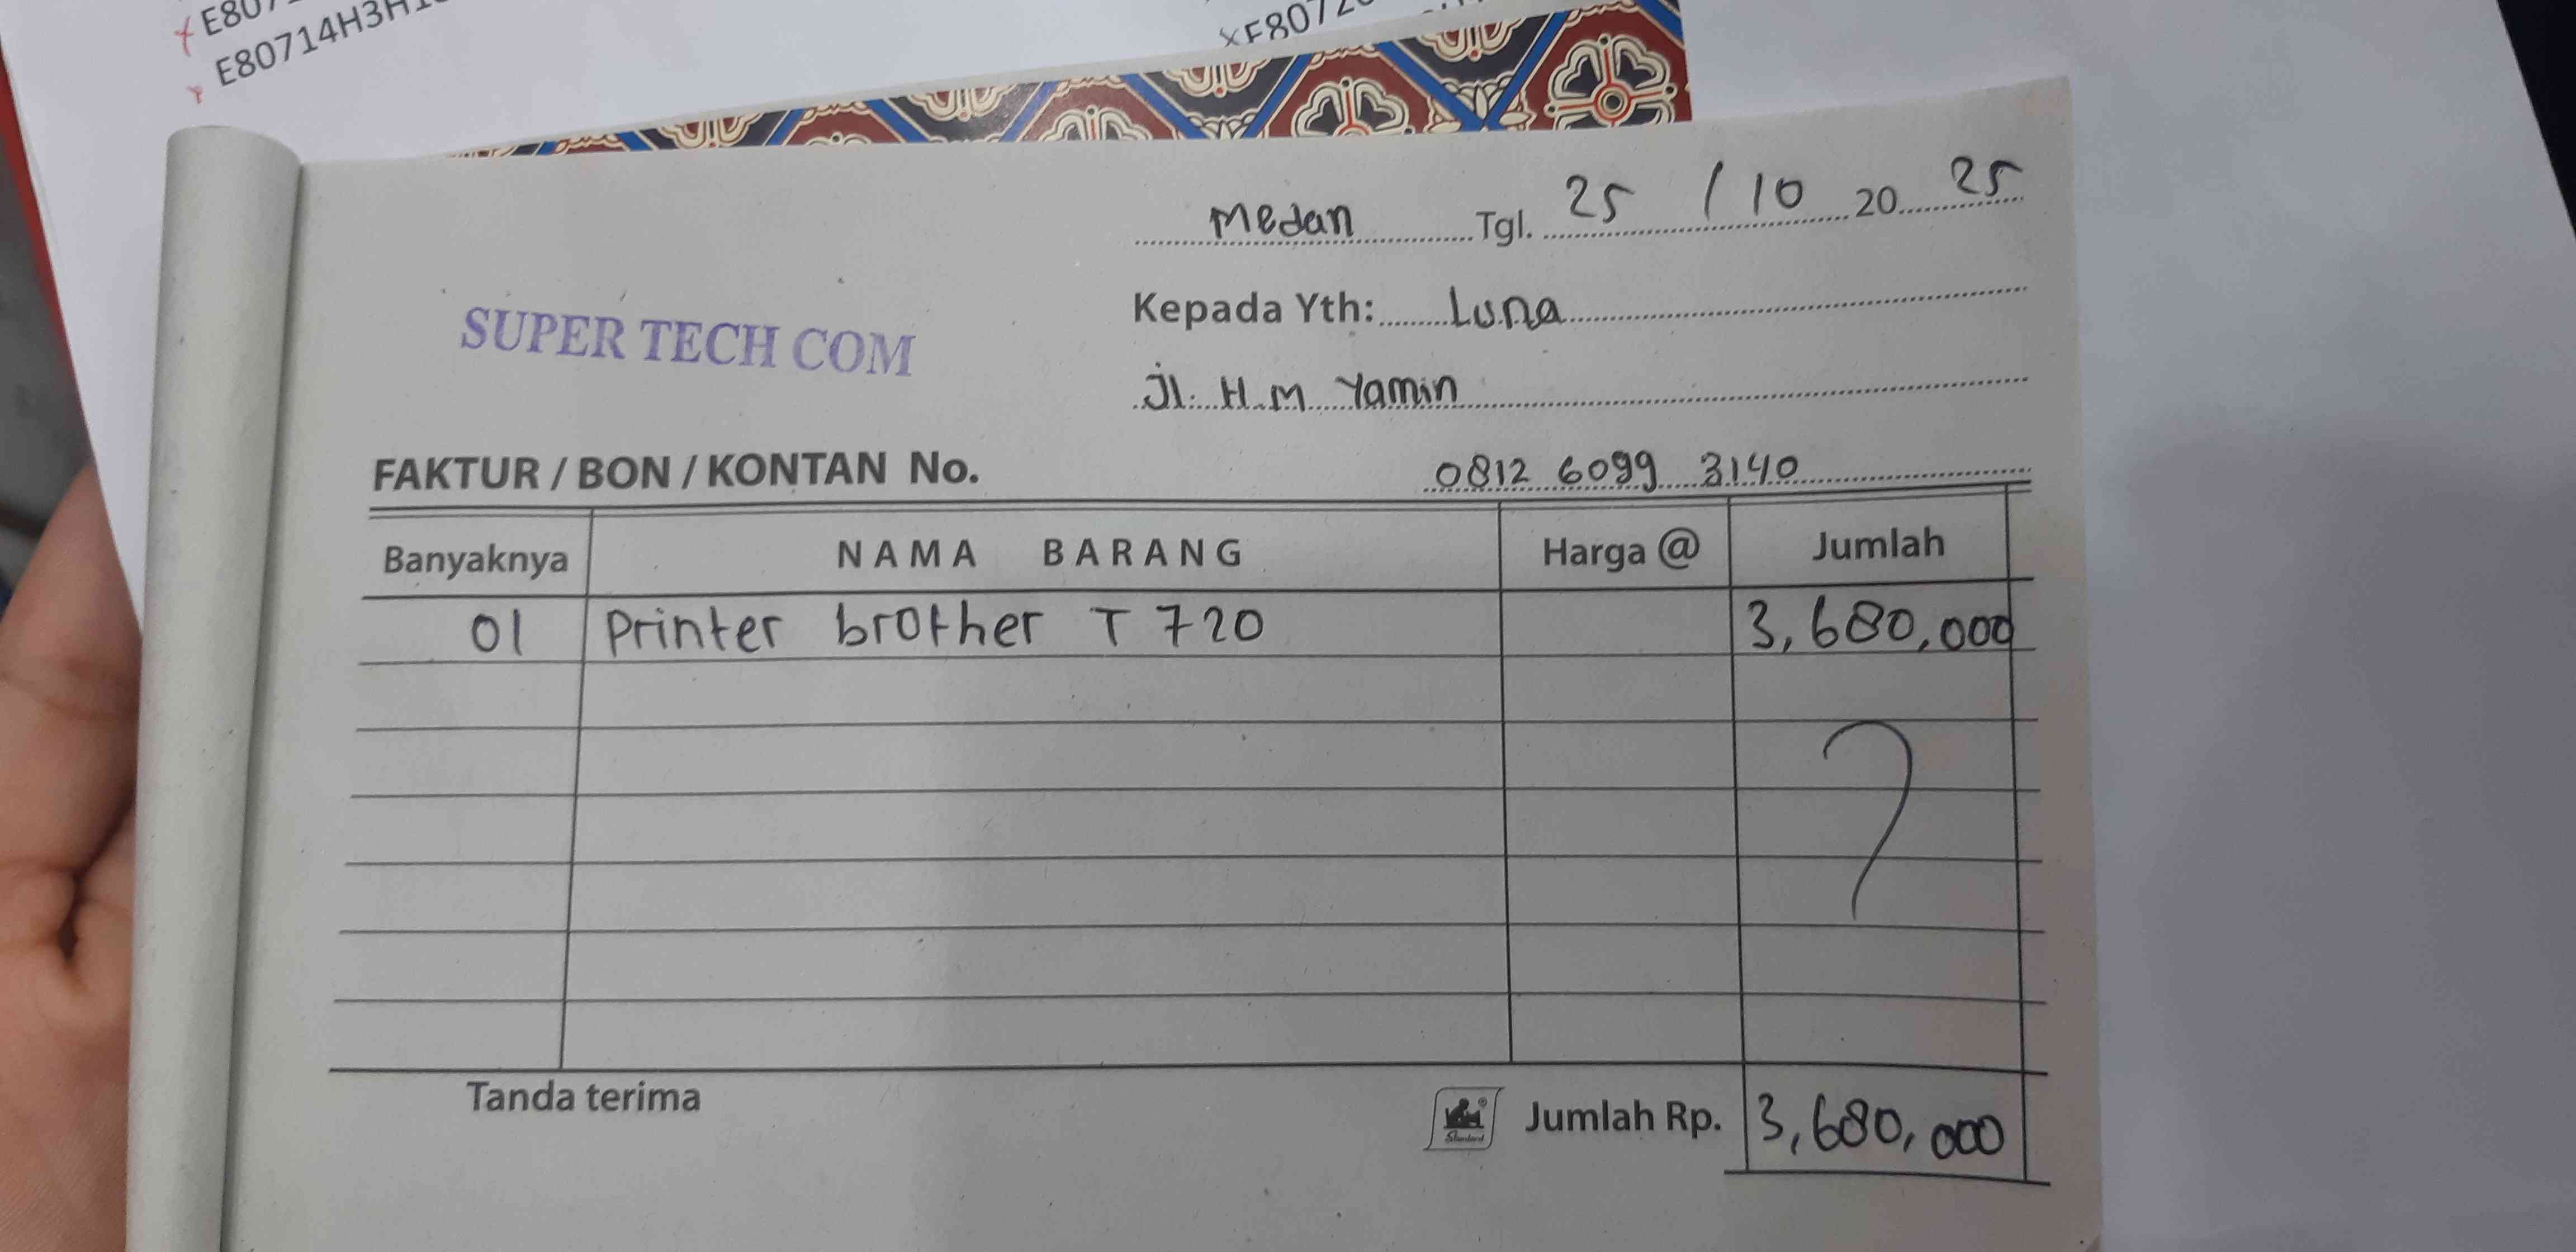 E80714H3H
Medan Tgl. 25 / 10 20 25
SUPER TECH COM
Kepada Yth: Luna
Jl. H.M Yamin
FAKTUR / BON / KONTAN No. 0812 6099 3140
Banyaknya NAMA BARANG Harga @ Jumlah
01 Printer brother T 720 3,680,000
Tanda terima Standard Jumlah Rp. 3,680,000